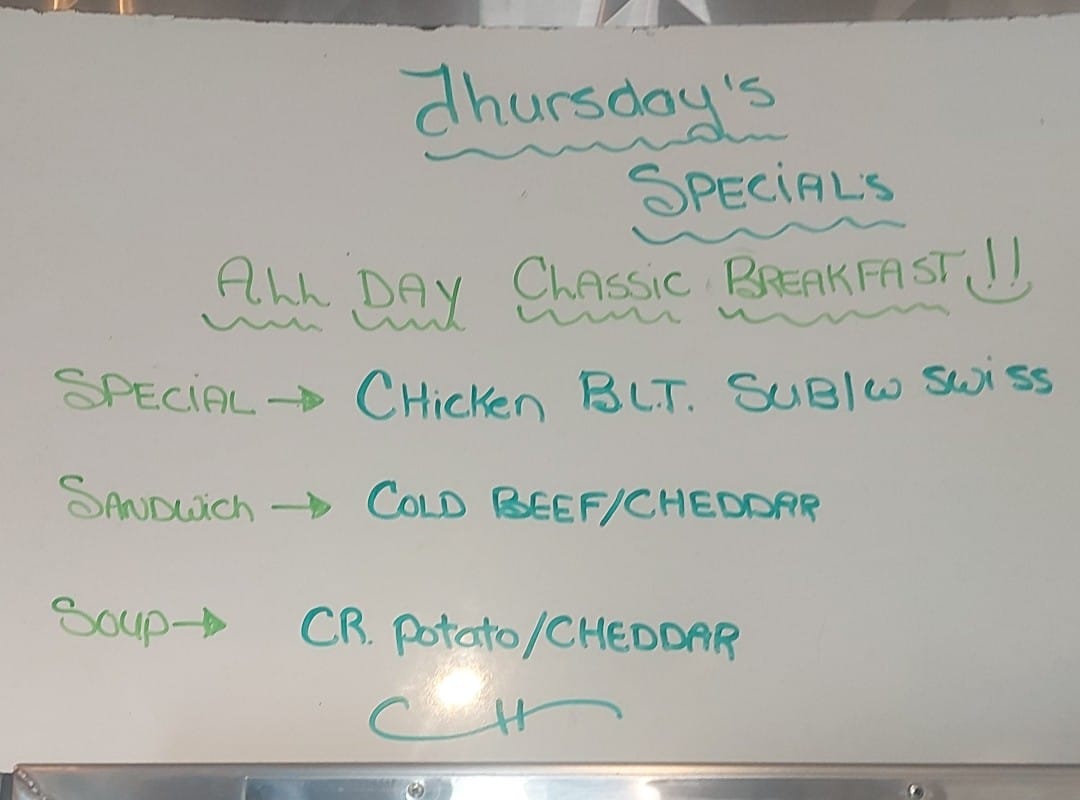 Thursday's
SPECIAL'S
ALL DAY CLASSIC BREAKFAST!!
SPECIAL → CHicken B.L.T. SUB/w Swiss
SANDWich → COLD BEEF/CHEDDAR
Soup → CR. Potato/CHEDDAR
CH